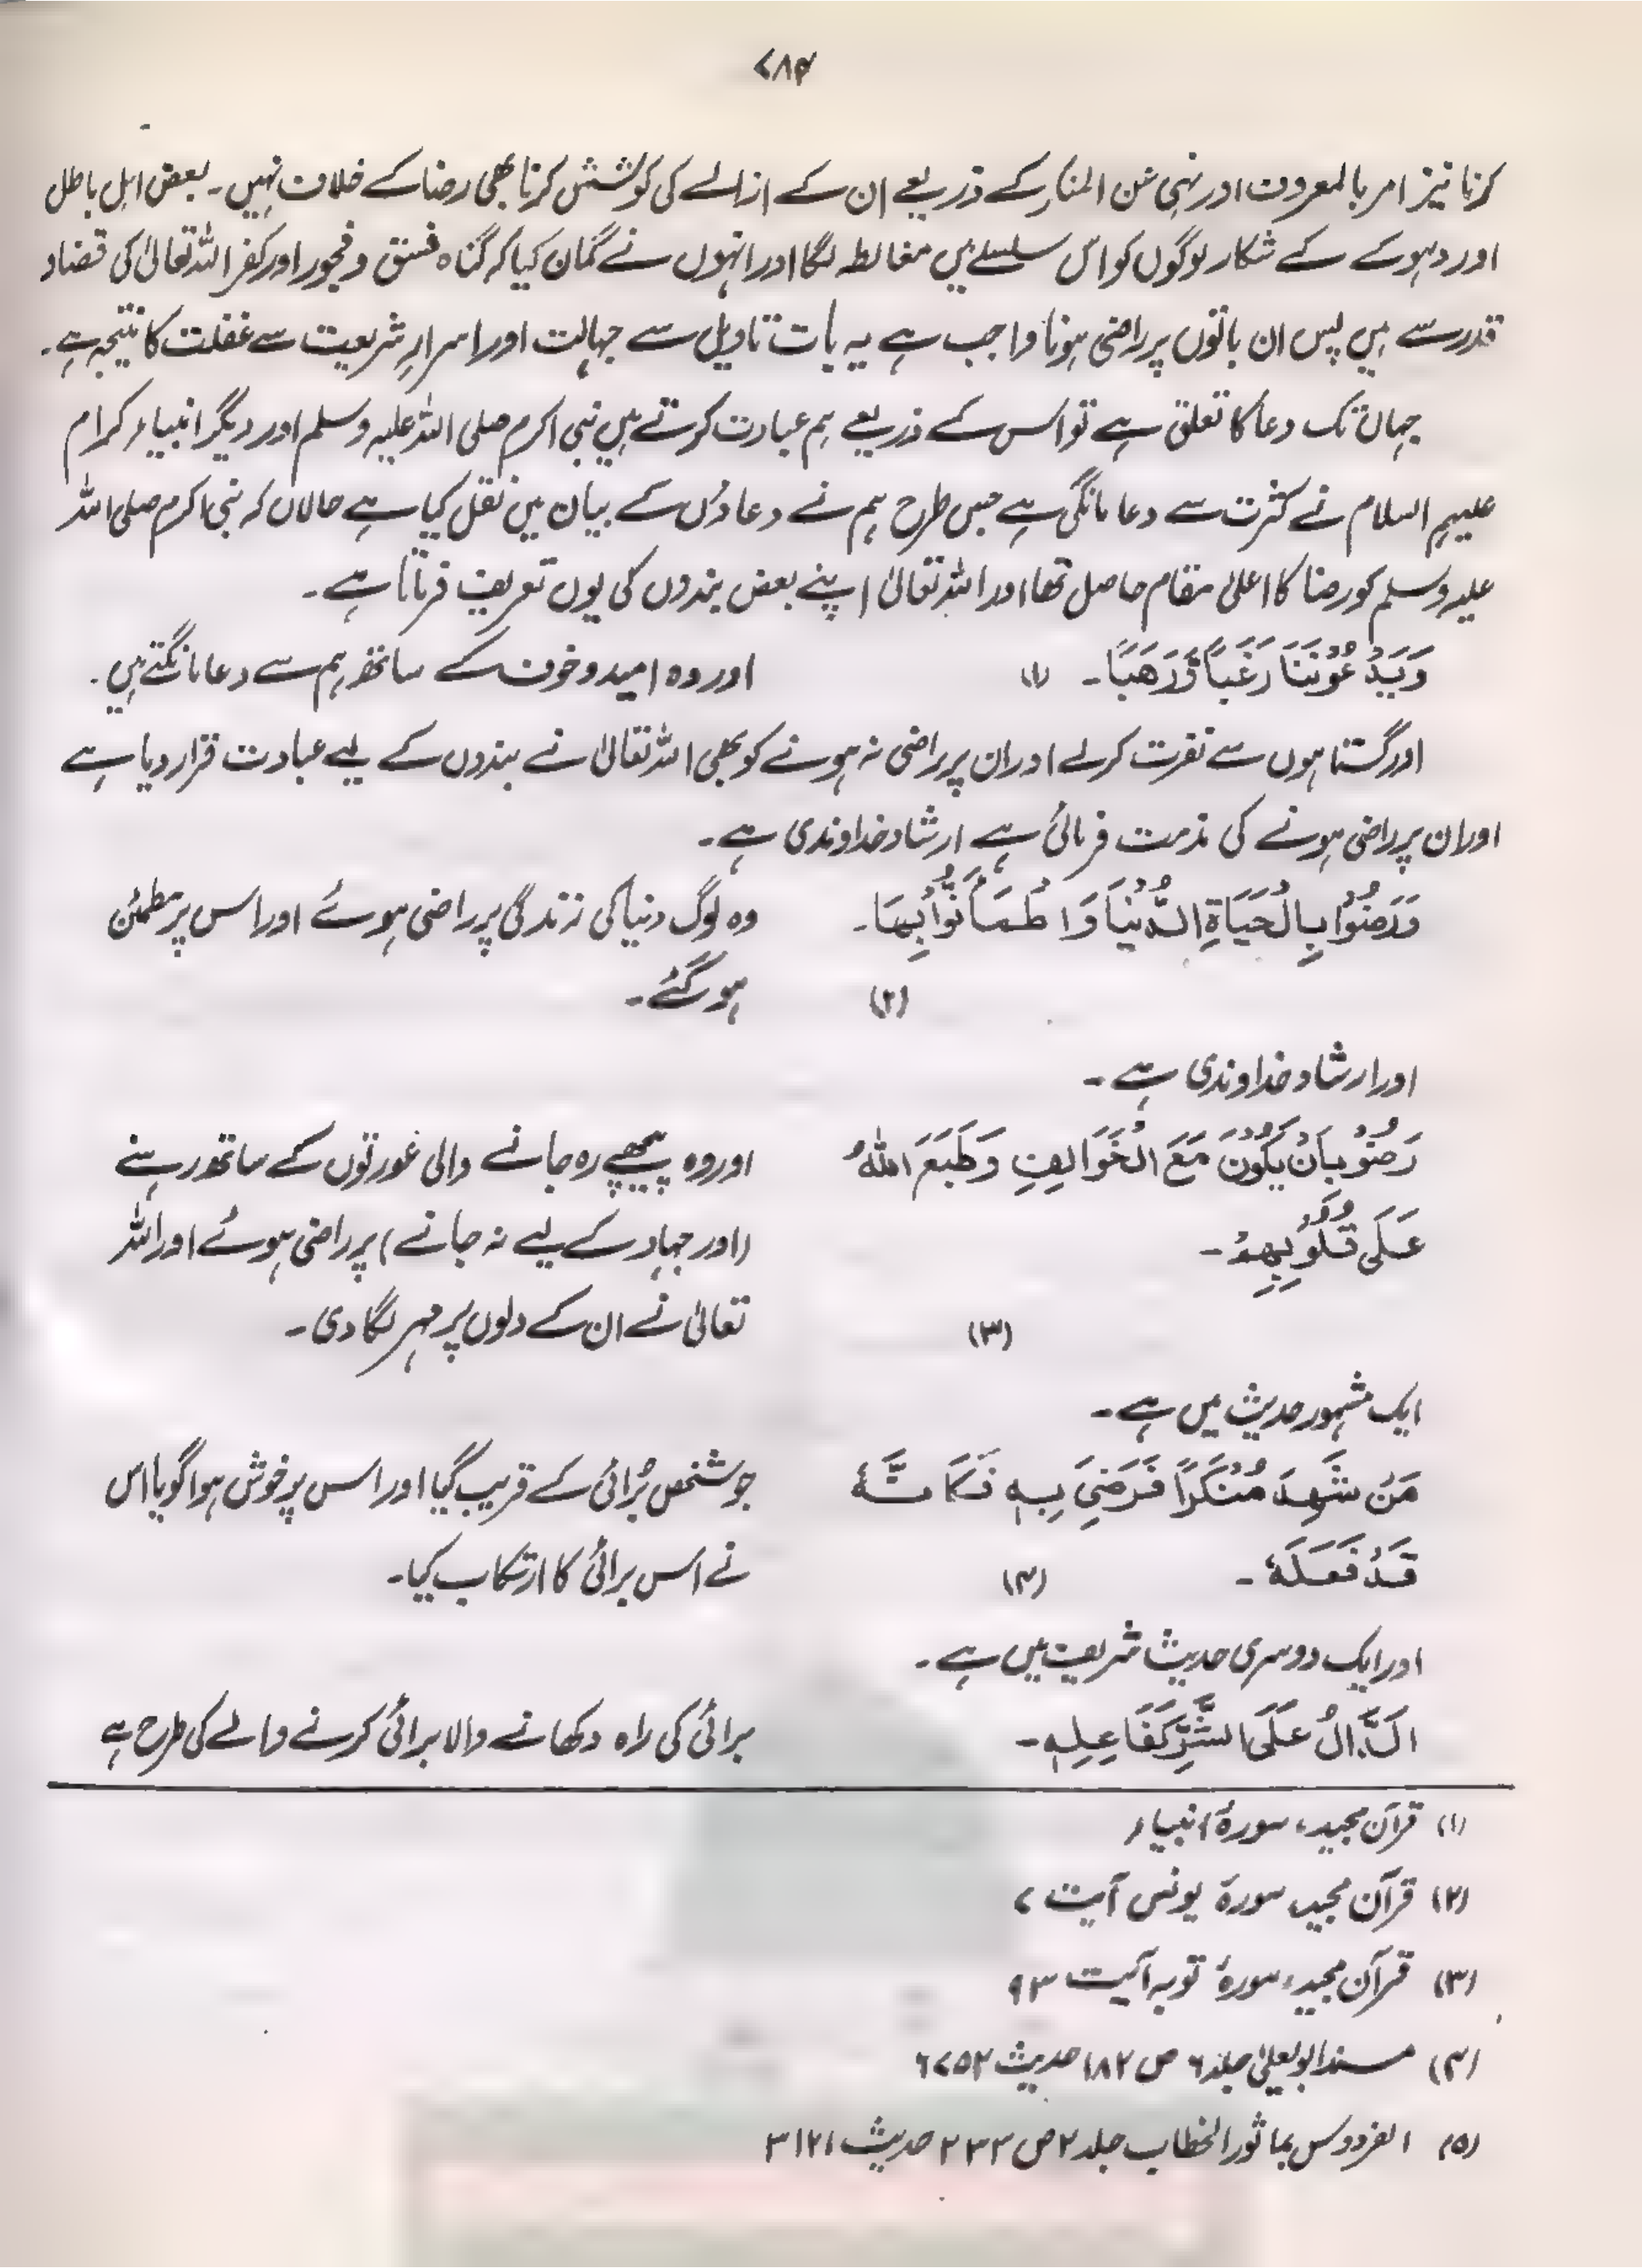 ۷۸۴
کرنا نیز امر بالمعروف اور نہی عن المنکر کے ذریعے ان کے ازالے کی کوشش کرنا بھی رضا کے خلاف نہیں۔ بعض اہل باطل
اور دہوکے کے شکار لوگوں کو اس سلسلے میں مغالطہ لگا اور انہوں نے گمان کیا کہ گناہ فسق و فجور اور کفر اللہ تعالیٰ کی قضاء و
قدر سے ہیں پس ان باتوں پر راضی ہونا واجب ہے یہ بات تاویل سے جہالت اور اسرارِ شریعت سے غفلت کا نتیجہ ہے۔
جہاں تک دعا کا تعلق ہے تو اس کے ذریعے ہم عبادت کرتے ہیں نبی اکرم صلی اللہ علیہ وسلم اور دیگر انبیاء کرام
علیہم السلام نے کثرت سے دعا مانگی ہے جس طرح ہم نے دعاؤں کے بیان میں نقل کیا ہے حالاں کہ نبی اکرم صلی اللہ
علیہ وسلم کو رضا کا اعلیٰ مقام حاصل تھا اور اللہ تعالیٰ اپنے بعض بندوں کی یوں تعریف فرماتا ہے۔
وَيَدْعُوْنَنَا رَغَبًا وَّرَهَبًا۔ (۱) اور وہ امید و خوف کے ساتھ ہم سے دعا مانگتے ہیں۔
اور گناہوں سے نفرت کرنے اور ان پر راضی نہ ہونے کو بھی اللہ تعالیٰ نے بندوں کے لیے عبادت قرار دیا ہے
اور ان پر راضی ہونے کی مذمت فرمائی ہے ارشاد خداوندی ہے۔
وَرَضُوْا بِالْحَيَاةِ الدُّنْيَا وَاطْمَأَنُّوْا بِهَا۔ وہ لوگ دنیا کی زندگی پر راضی ہوئے اور اس پر مطمئن
(۲) ہو گئے۔
اور ارشاد خداوندی ہے۔
رَضُوْ بِاَنْ يَكُوْنَ مَعَ الْخَوَالِفِ وَطَبَعَ اللهُ اور وہ پیچھے رہ جانے والی عورتوں کے ساتھ رہنے
عَلَى قُلُوْبِهِمْ۔ (اور جہاد کے لیے نہ جانے) پر راضی ہوئے اور اللہ
(۳) تعالیٰ نے ان کے دلوں پر مہر لگا دی۔
ایک مشہور حدیث میں ہے۔
مَنْ شَهِدَ مُنْكَرًا فَرَضِيَ بِهِ فَكَاَنَّهٗ جو شخص بُرائی کے قریب گیا اور اس پر خوش ہوا گویا اس
قَدْ فَعَلَهٗ۔ (۴) نے اس برائی کا ارتکاب کیا۔
اور ایک دوسری حدیث شریف میں ہے۔
اَلدَّالُ عَلَى الشَّرِّ كَفَاعِلِهِ۔ برائی کی راہ دکھانے والا برائی کرنے والے کی طرح ہے
(۱) قرآن مجید، سورۂ انبیاء
(۲) قرآن مجید سورۃ یونس آیت ۷
(۳) قرآن مجید، سورۂ توبہ آیت ۹۳
(۴) مسند ابو یعلیٰ جلد ۶ ص ۱۸۲ حدیث ۶۷۵۲
(۵) الفردوس بماثور الخطاب جلد ۲ ص ۲۳۳ حدیث ۳۱۲۱